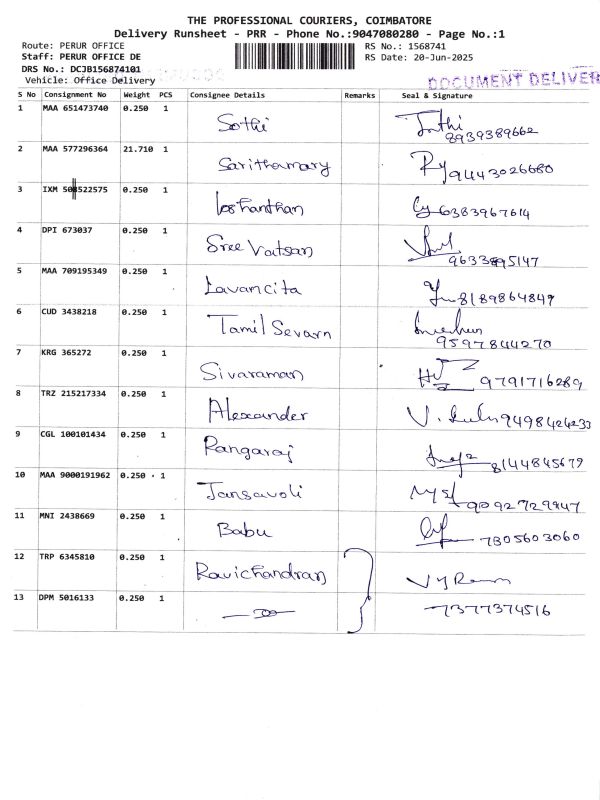 THE PROFESSIONAL COURIERS, COIMBATORE
Delivery Runsheet - PRR - Phone No.:9047080280 - Page No.:1
Route: PERUR OFFICE
RS No.: 1568741
Staff: PERUR OFFICE DE
RS Date: 20-Jun-2025
DRS No.: DCJB156874101
Vehicle: Office Delivery
DOCUMENT DELIVER
S No Consignment No Weight PCS Consignee Details Remarks Seal & Signature
1 MAA 651473740 0.250 1 Sothi Jothi
8939389662
2 MAA 577296364 21.710 1 Sarithamary 9443026680
3 IXM 522575 0.250 1 6383967614
4 DPI 673037 0.250 1 Sree Vatsan
9633895147
5 MAA 709195349 0.250 1 Lavancita 8189864849
6 CUD 3438218 0.250 1 Tamil Sevarn
9597844270
7 KRG 365272 0.250 1 Sivaraman 9791716289
8 TRZ 215217334 0.250 1 Alexander V. 9498424233
9 CGL 100101434 0.250 1 Rangaraj
8144845679
10 MAA 9000191962 0.250 1 Jansavoli 9092729947
11 MNI 2438669 0.250 1 Babu 7305603060
12 TRP 6345810 0.250 1 Ravichandran
13 DPM 5016133 0.250 1 7377374516